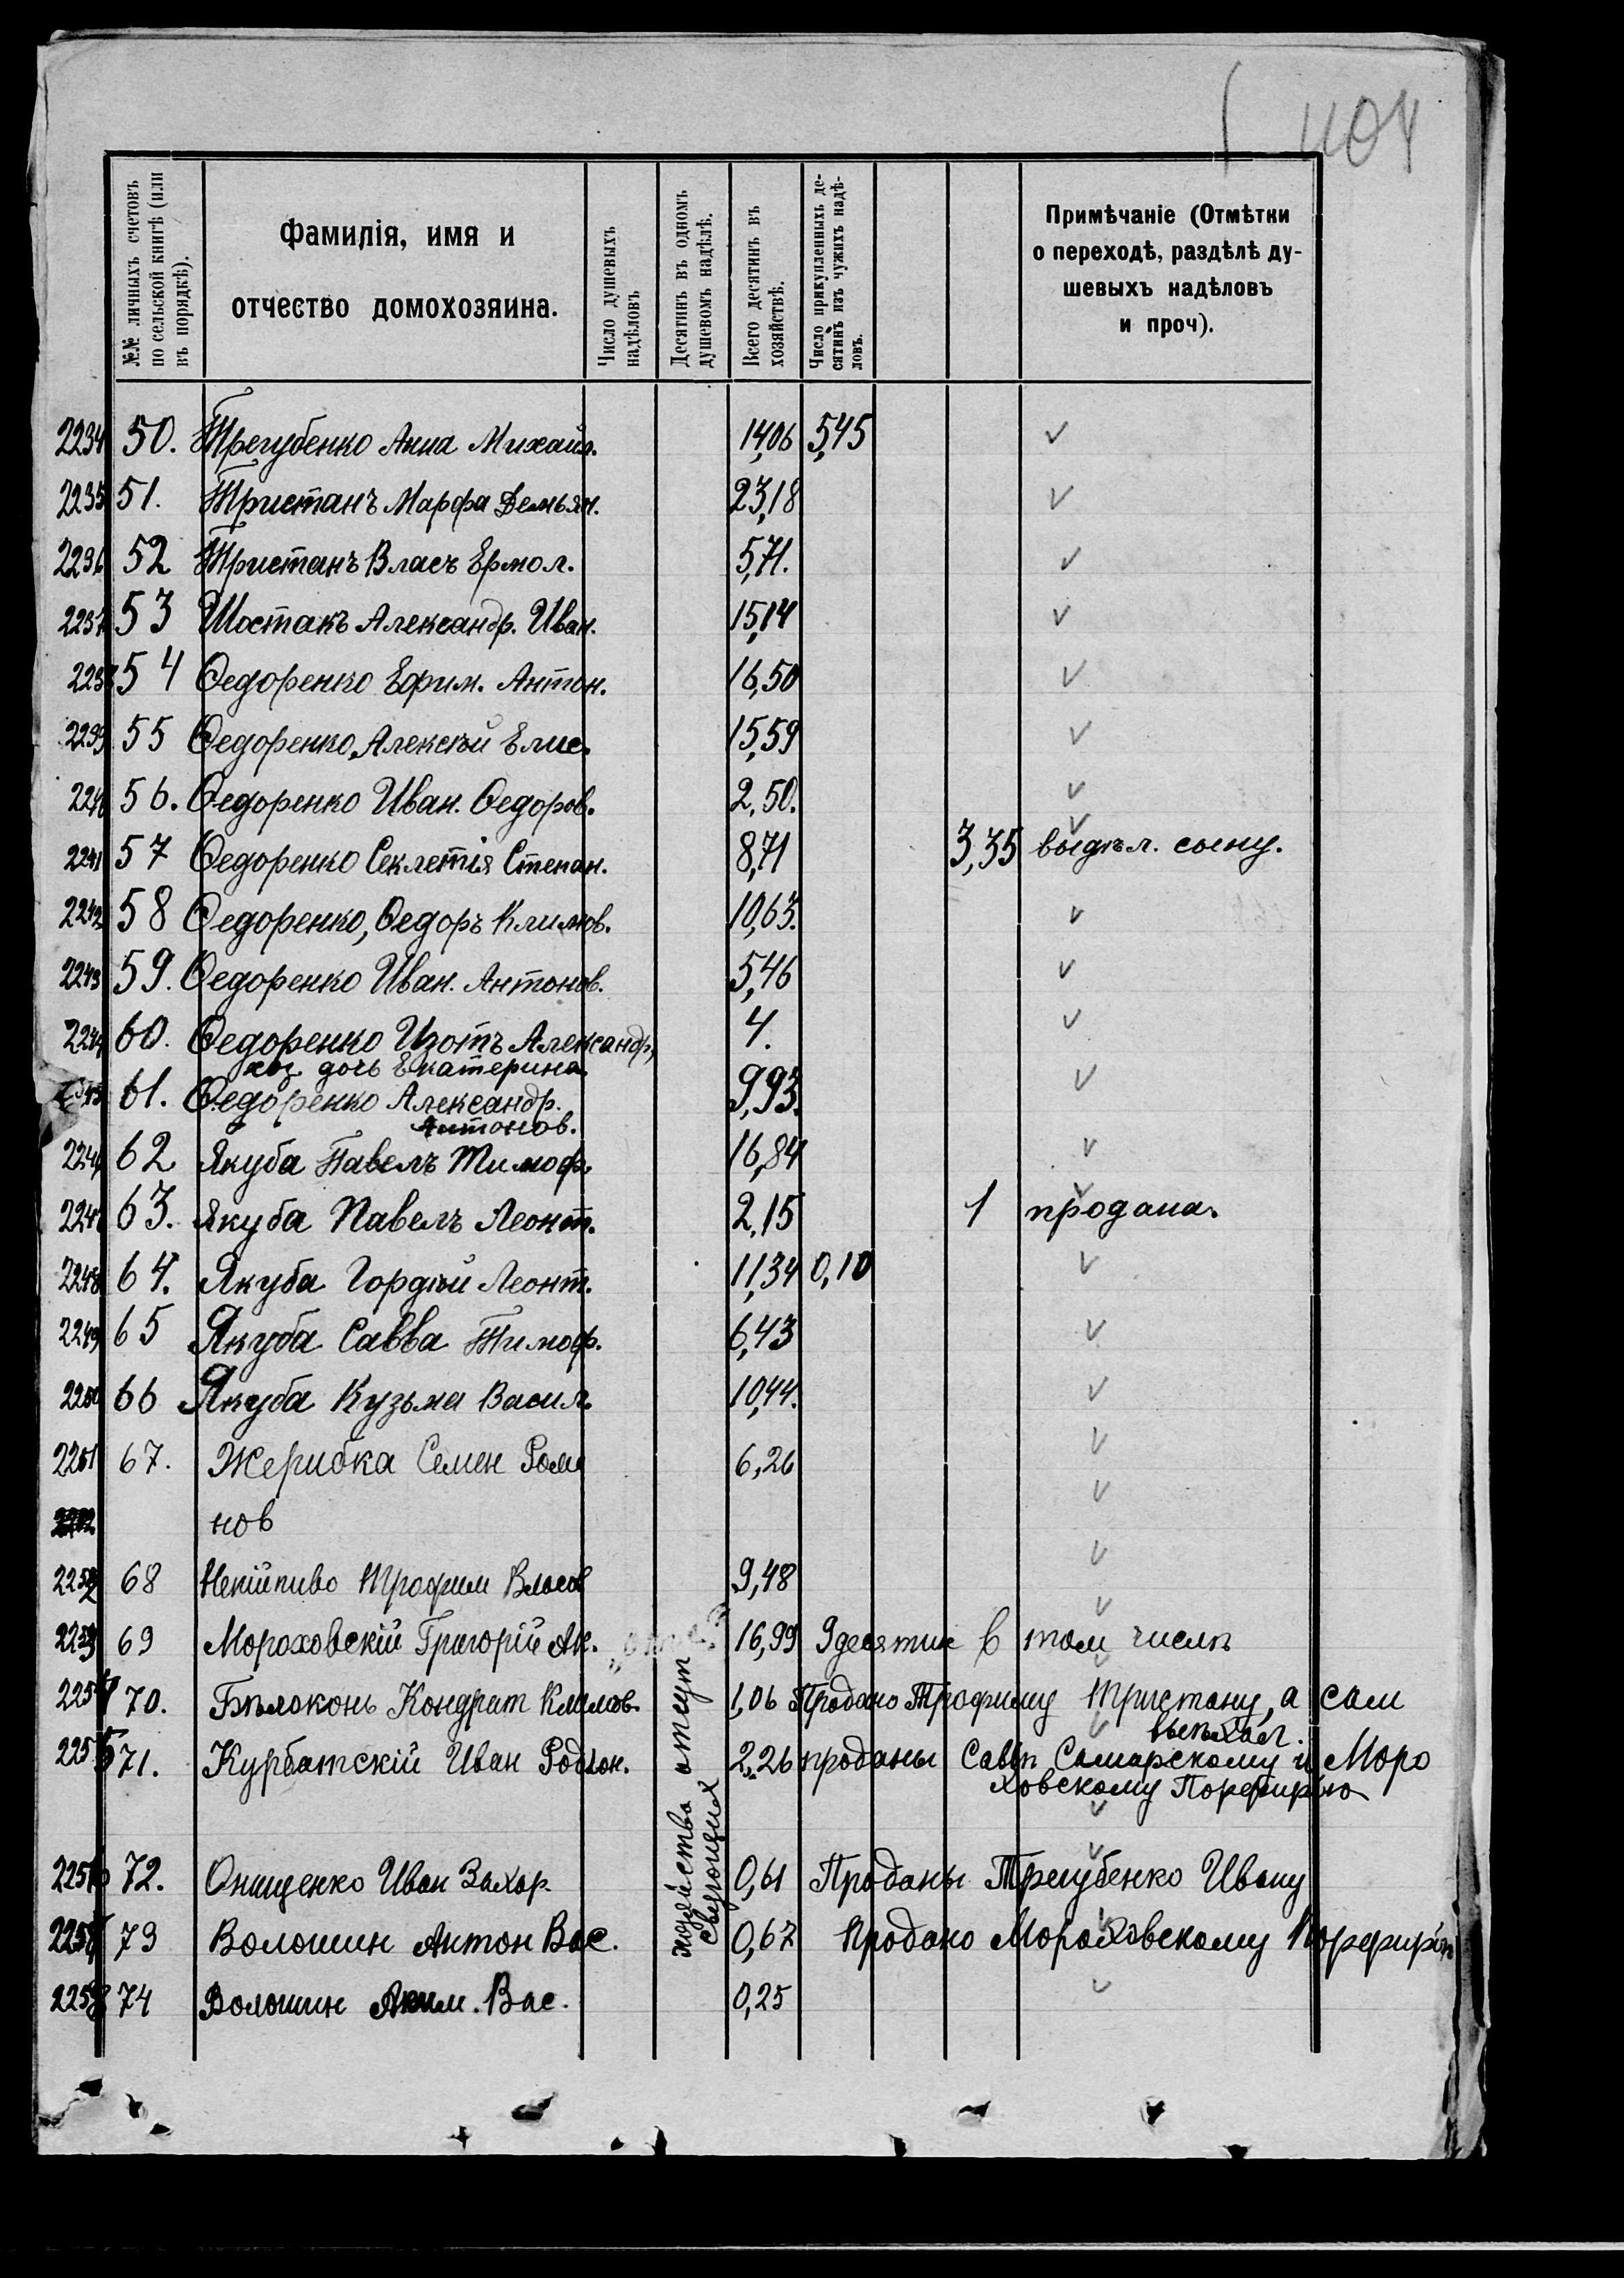 404
№№ личныхъ счетовъ по сельской книгѣ (или въ порядкѣ).
Фамилія, имя и отчество домохозяина.
Число душевыхъ надѣловъ
Десятинъ въ одномъ душевомъ надѣлѣ.
Всего десятинъ въ хозяйствѣ.
Число прикупленныхъ десятинъ изъ чужихъ надѣловъ.
Примѣчаніе (Отмѣтки
о переходѣ, раздѣлѣ ду-
шевыхъ надѣловъ
и проч).
2234 50. Трегубенко Анна Михайл. 14,06 5,45 ✓
2235 51. Тристанъ Марфа Демьян. 23,18 ✓
2236 52 Тристанъ Власъ Ермол. 5,71. ✓
2237 53 Шостакъ Александр. Иван. 15,14 ✓
2238 54 Ѳедоренко Ефим. Антон. 16,50 ✓
2239 55 Ѳедоренко, Алексѣй Елис. 15,59 ✓
2240 56. Ѳедоренко Иван. Ѳедоров. 2,50. ✓
2241 57 Ѳедоренко Секлетія Степан. 8,71 3,35 выдѣл. сыну. ✓
2242 58 Ѳедоренко, Ѳедоръ Климов. 10,63. ✓
2243 59. Ѳедоренко Иван. Антонов. 5,46 ✓
2244 60. Ѳедоренко Изотъ Александр, 4. ✓
хоз дочь Екатерина.
2245 61. Ѳедоренко Александр. 9,93. ✓
Антонов.
2246 62 Якуба Павелъ Тимоф. 16,84 ✓
2247 63. Якуба Павелъ Леонт. 2,15 1 продана. ✓
2248 64. Якуба Гордѣй Леонт. 11,34 0,10 ✓
2249 65 Якуба Савва Тимоф. 6,43 ✓
2250 66 Якуба Кузьма Васил. 10,44. ✓
2251 67. Жерибка Семен Рома 6,26 ✓
нов ✓
2252 68 Непійпиво Трофим Власов 9,48 ✓
2253 69 Мороховскій Григорій Ак. 16,99 9 десятин в том числѣ ✓
2254 70. Бѣлоконь Кондрат Климов. 1,06 Продано Трофиму Тристану, а сам ✓
выѣхал.
2255 71. Курбатскій Иван Родіон. 2,26 проданы Саввѣ Самарскому и Моро ✓
ховскому Порфирію ✓
хозяйства отсут
свѣдующих
2256 72. Онищенко Иван Захар. 0,61 Проданы Трегубенко Ивану ✓
2257 73 Волошин Антон Вас. 0,67 Продано Мороховскому Порфирію ✓
2258 74 Волошин Аким. Вас. 0,25 ✓